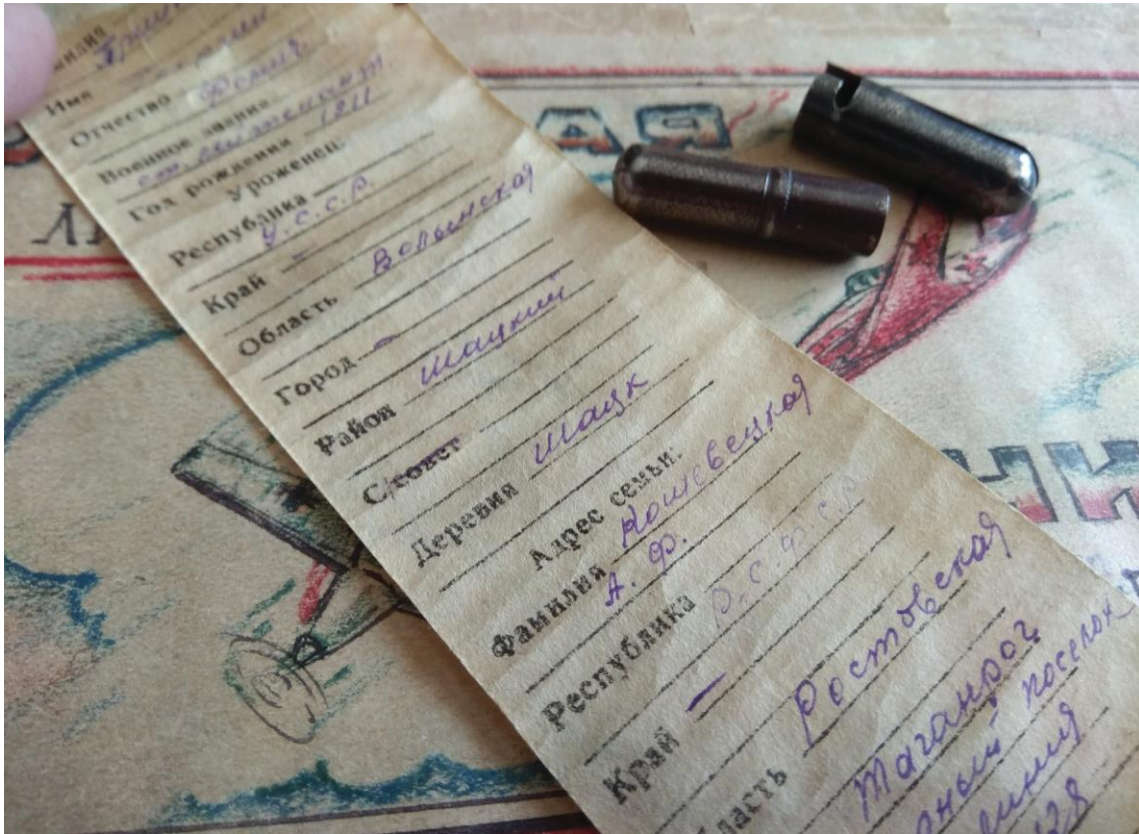 Имя
Отчество
Военное звание
ст. лейтенант.
Год рождения 1911
Уроженец:
Республика
У.С.С.Р.
Край –
Область Волынская
Город –
Район Шацкий
С/совет
Деревня Шацк
Адрес семьи.
Фамилия Кошевецкая
А. Ф.
Республика Р.С.Ф.С.Р
Край –
Ростовская
Таганрог
поселок
линия